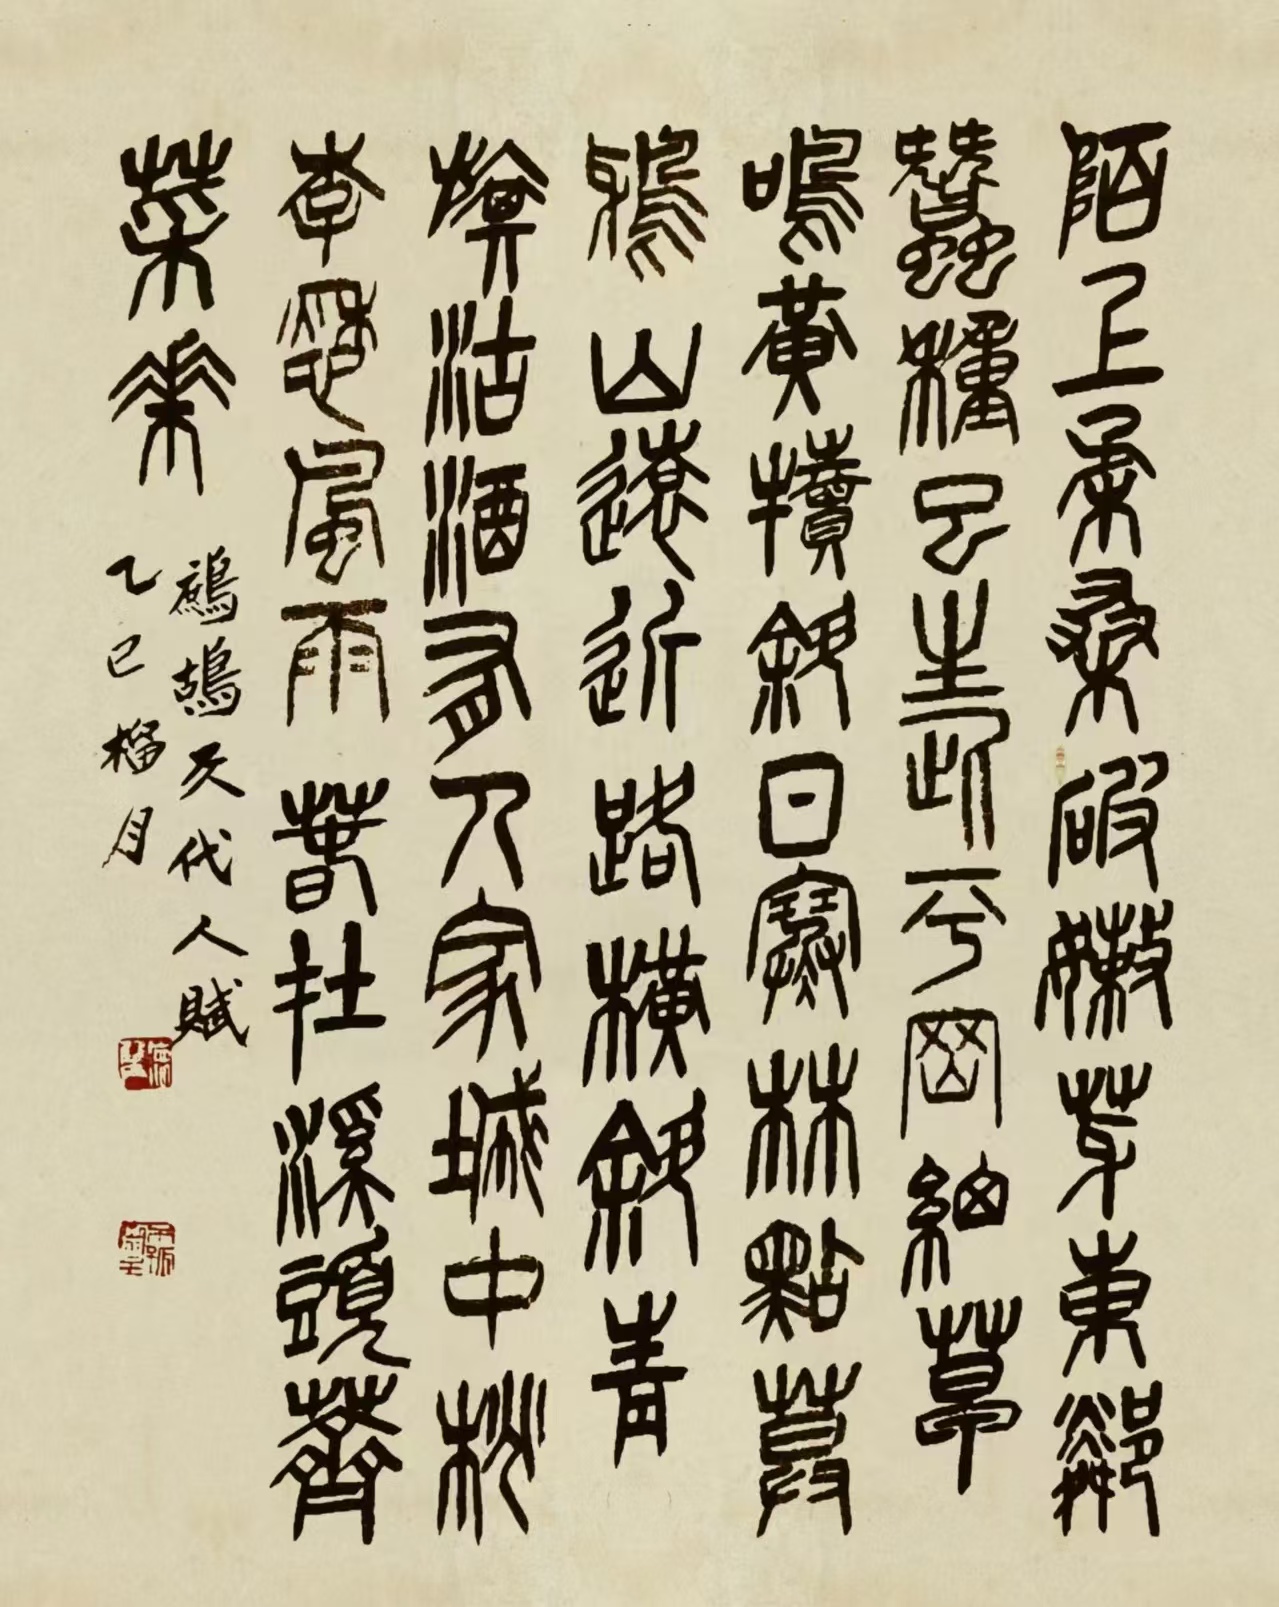 陌上柔桑破嫩芽東鄰
蠶種已生些平岡細草
鳴黃犢斜日寒林點暮
鴉山遠近路橫斜青
旗沽酒有人家城中桃
李愁風雨春在溪頭薺
菜花
鷓鴣天代人賦
乙巳榴月